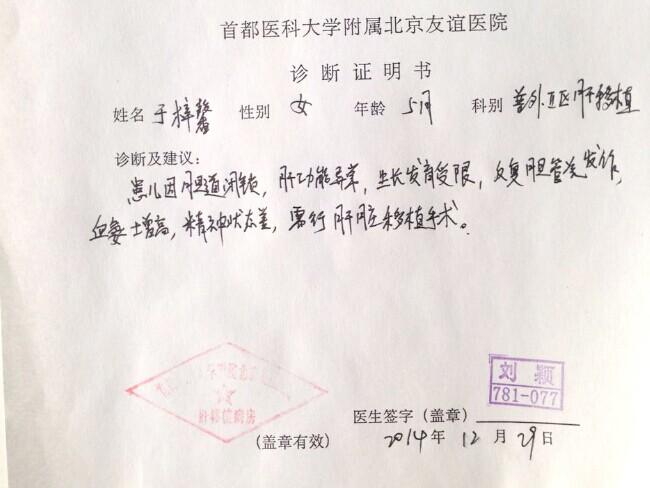 首都医科大学附属北京友谊医院
诊断证明书
姓名 于梓馨 性别 女 年龄 5月 科别 普外五区肝移植
诊断及建议：
患儿因胆道闭锁，肝功能异常，生长发育受限，反复胆管炎发作，
血氨升增高，精神状态差，需行肝脏移植手术。
肝移植病房
刘颖
781-077
医生签字（盖章）
(盖章有效) 2014年12月29日